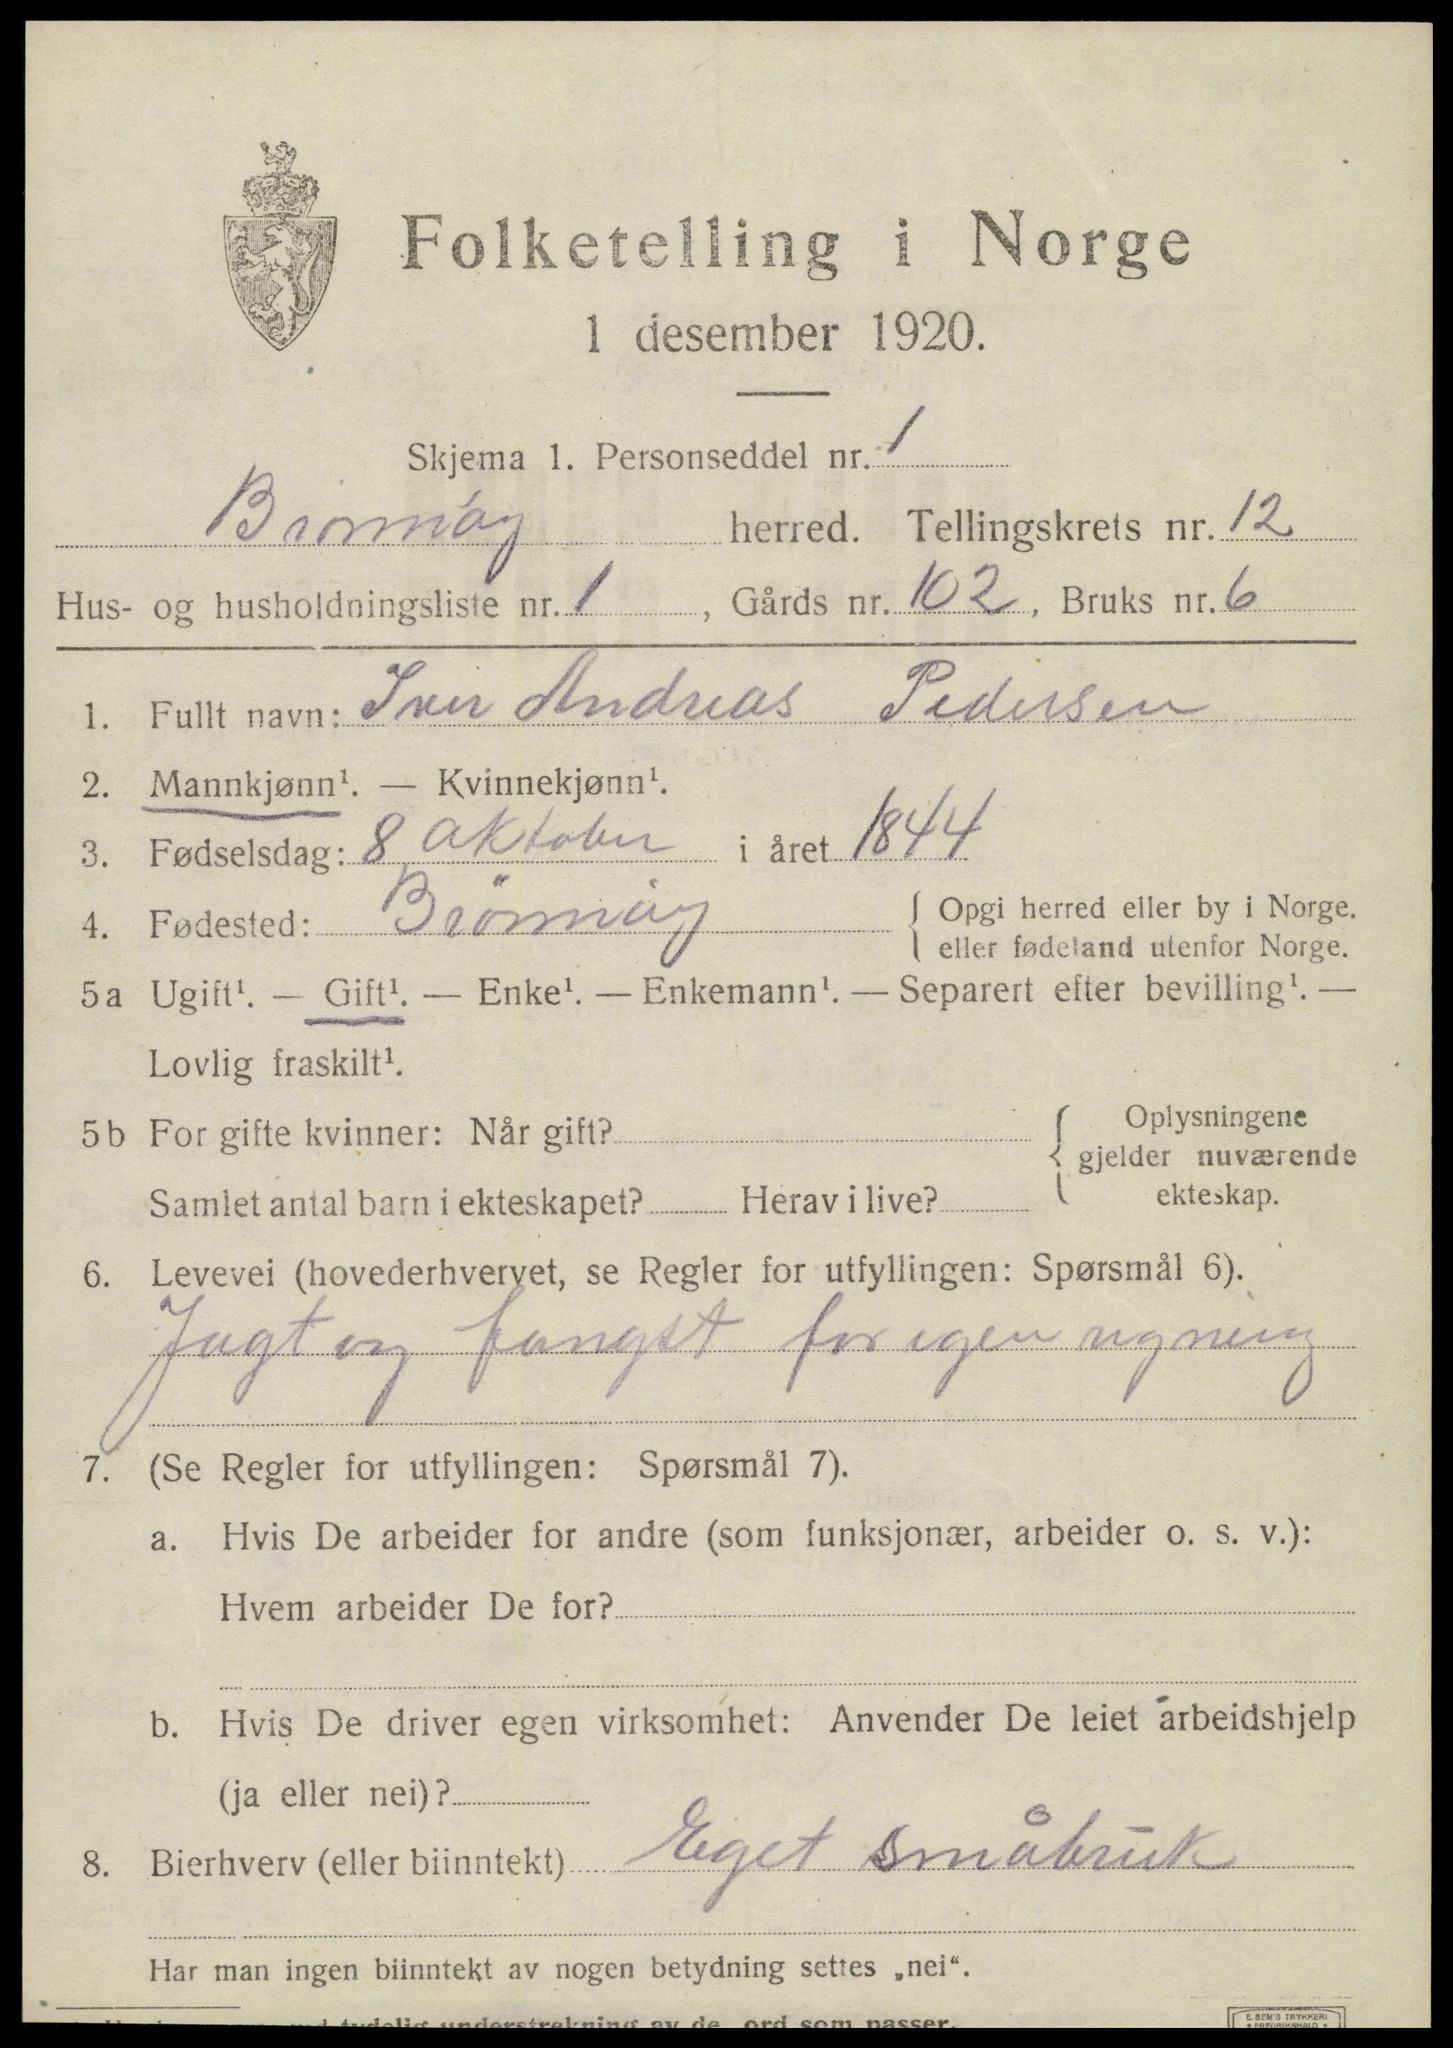 Folketelling i Norge
1 desember 1920.
Skjema 1. Personseddel nr. 1
Brönnöy herred. Tellingskrets nr. 12
Hus- og husholdningsliste nr. 1, Gårds nr. 102, Bruks nr. 6
1. Fullt navn: Iver Andreas Pedersen
2. Mannkjønn¹. — Kvinnekjønn¹.
3. Fødselsdag: 8 oktober i året 1844
4. Fødested: Brönnöy { Opgi herred eller by i Norge.
eller fødeland utenfor Norge.
5a Ugift¹. — Gift¹. — Enke¹. — Enkemann¹. — Separert efter bevilling¹. —
Lovlig fraskilt¹.
5b For gifte kvinner: Når gift? { Oplysningene
gjelder nuværende
ekteskap.
Samlet antal barn i ekteskapet? Herav i live?
6. Levevei (hovederhvervet, se Regler for utfyllingen: Spørsmål 6).
Jagt og fangst for egen regning
7. (Se Regler for utfyllingen: Spørsmål 7).
a. Hvis De arbeider for andre (som funksjonær, arbeider o. s. v.):
Hvem arbeider De for?
b. Hvis De driver egen virksomhet: Anvender De leiet arbeidshjelp
(ja eller nei)?
8. Bierhverv (eller biinntekt) Eget småbruk
Har man ingen biinntekt av nogen betydning settes „nei“.
tydelig understrekning av de ord som passer.
E. SEM'S TRYKKERI
FREDRIKSHALD